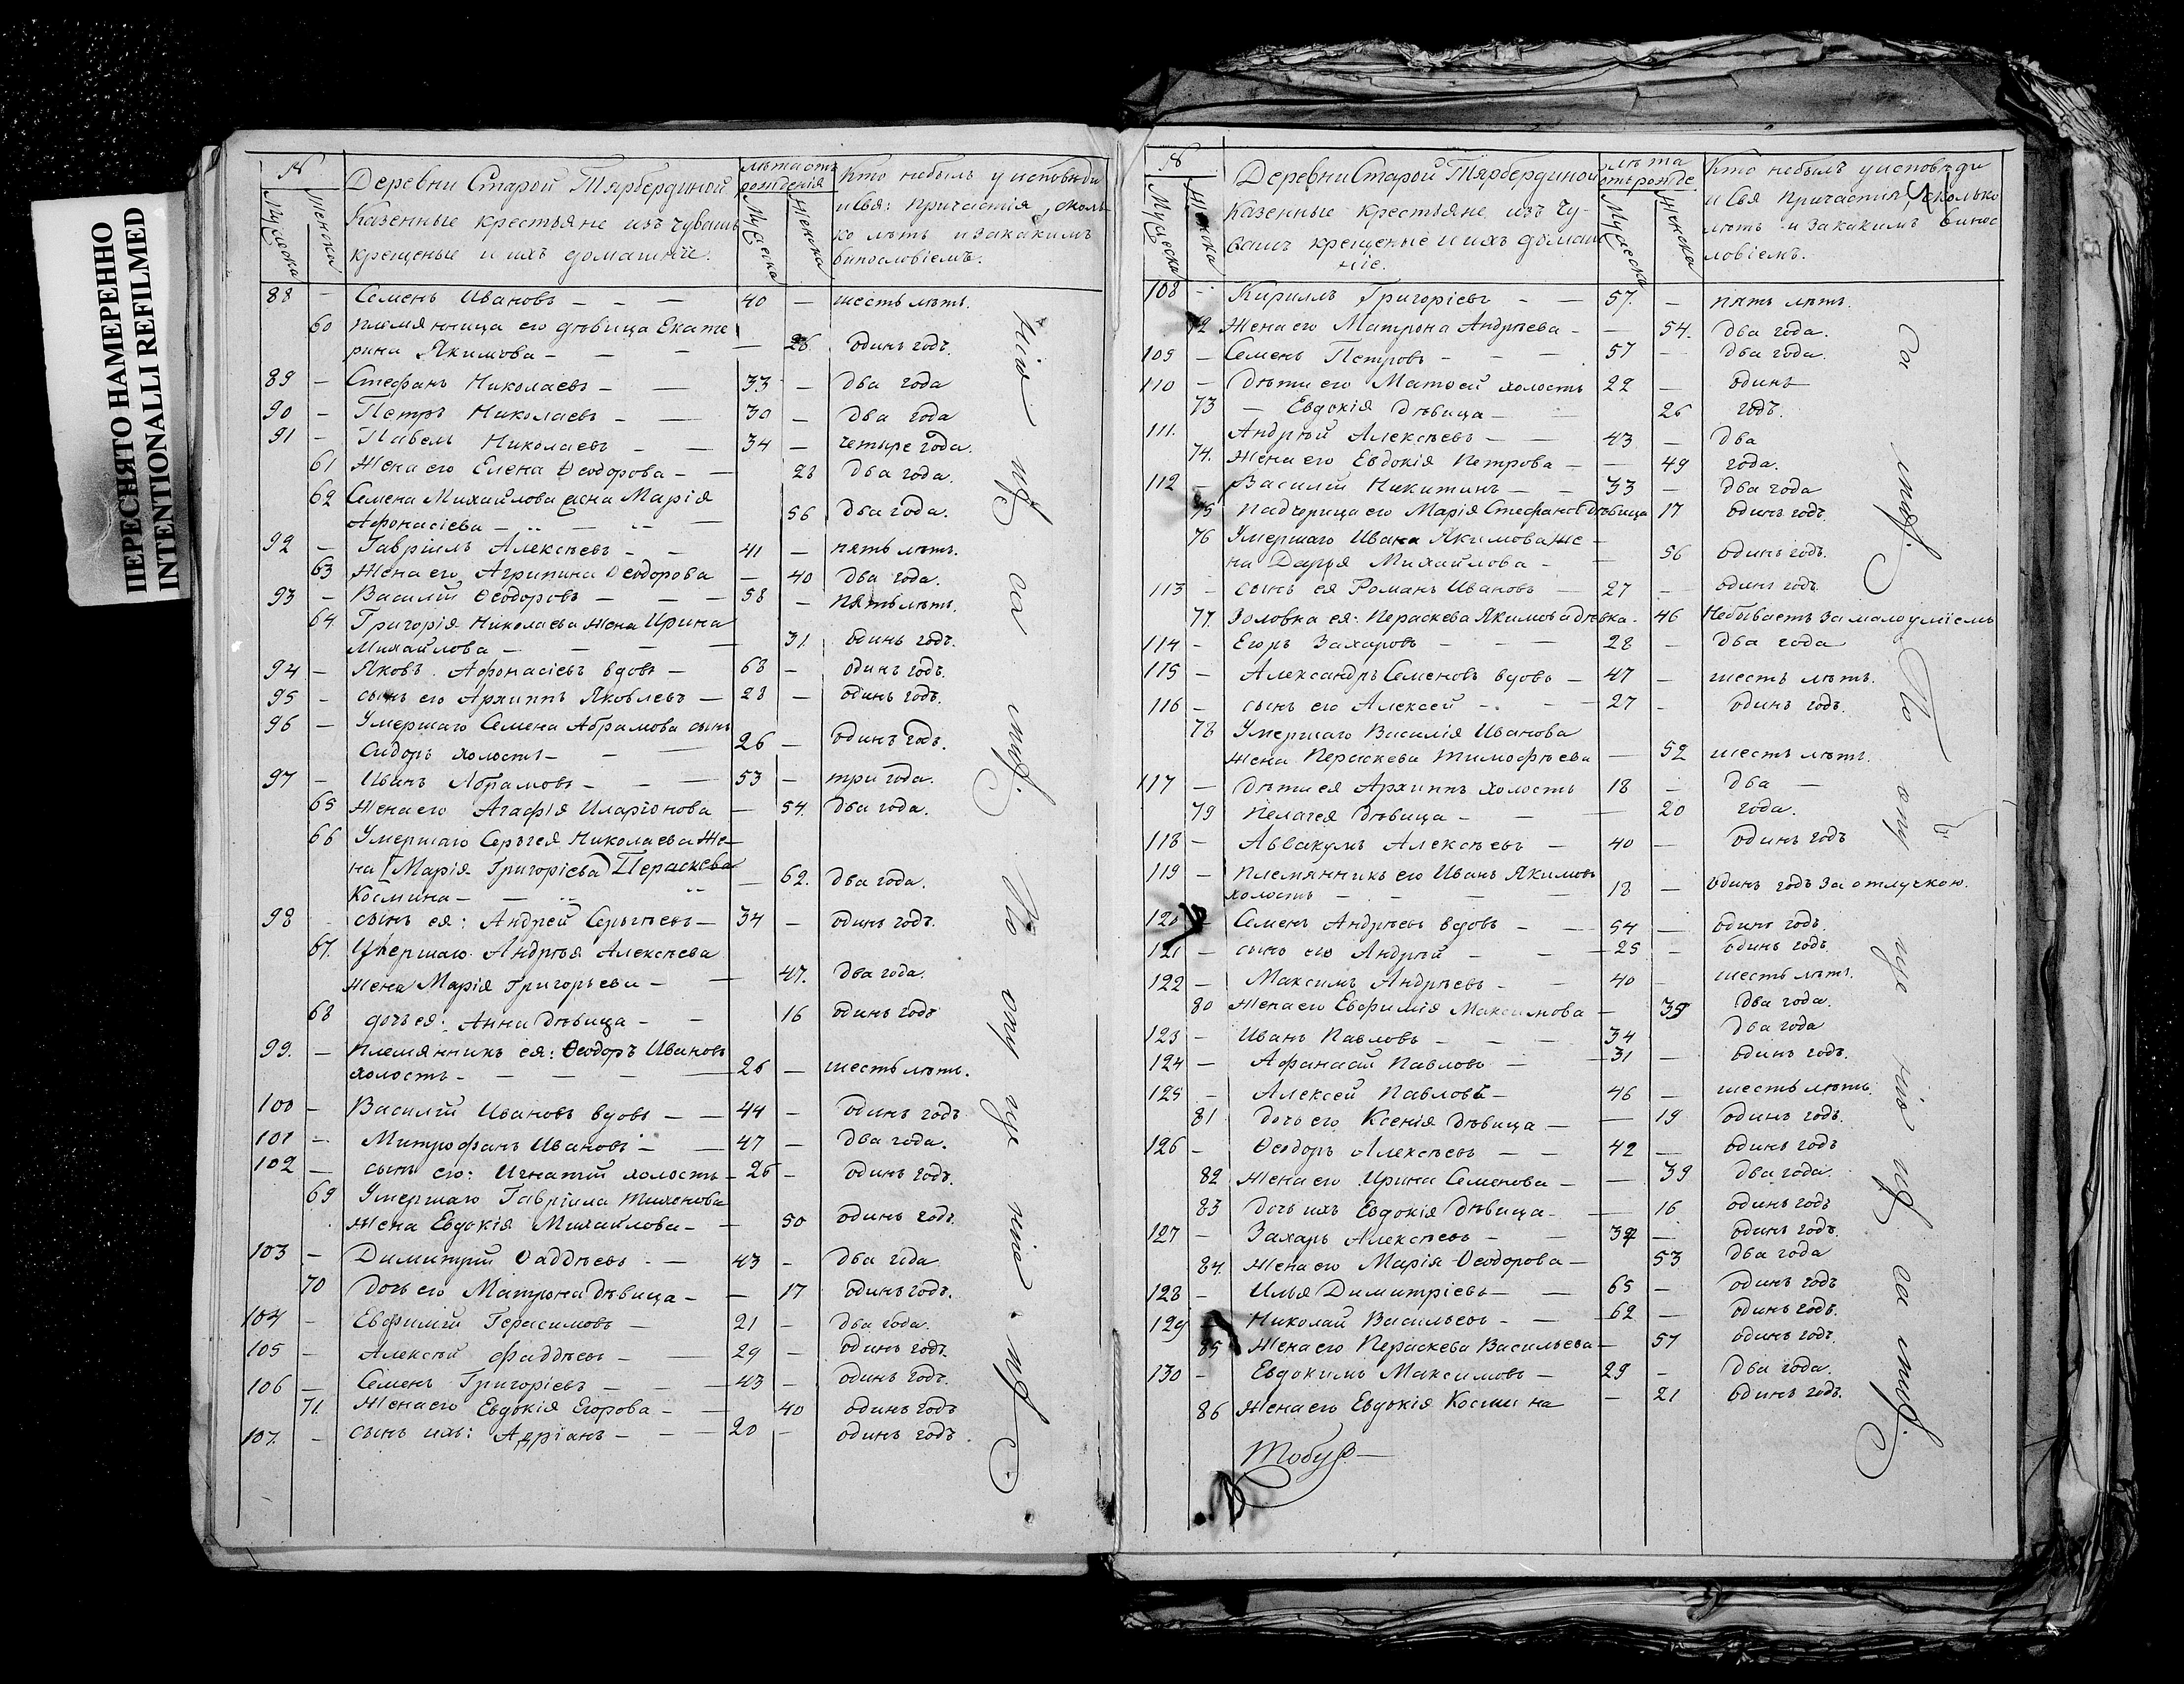 ПЕРЕСНЯТО НАМЕРЕННО
INTENTIONALLI REFILMED
№
Мужеска
Женска
Деревни Старой Тярбердиной
Казенные крестьяне изъ чувашъ
крещеные и ихъ домашніе.
лѣта отъ
рожденія
Мужеска
Женска
Кто небылъ у исповѣди
и Свя: Причастія, сколь-
ко лѣтъ и за какимъ
винословіемъ.
88 – Семенъ Ивановъ – – – 40 – шесть лѣтъ.
60 племянница его дѣвица Екате
рина Якимова – – – – 26. одинъ годъ.
89 – Стефанъ Николаевъ – – 33 – два года
90 – Петръ Николаевъ – – 30 – два года
91 – Павелъ Николаевъ – – 34 – четыре года.
61 Жена его Елена Ѳеодорова – – 28 два года.
62 Семена Михайлова жена Марія
Афонасіева – – – 56 два года.
92 – Гавріилъ Алексѣевъ – – 41 – пять лѣтъ.
63 Жена его Агрипина Ѳеодорова – 40 два года.
93 – Василій Ѳеодоровъ – – – 58 – пять лѣтъ.
64. Григорія Николаева жена Ирина
Михайлова – – – – 31. одинъ годъ.
94 – Яковъ Афонасіевъ вдовъ – 68 – одинъ годъ.
95 – сынъ его Архиппъ Яковлевъ – 28 – одинъ годъ.
96 – Умершаго Семена Абрамова сынъ
Сидоръ холостъ – – – 26 – одинъ годъ.
97 – Иванъ Абрамовъ – – – 53 – три года.
65 Жена его Агафія Иларіонова – 54. два года.
66 Умершаго Серьгея Николаева Же-
на [Марія Григоріева] Пераскева
Космина – – – 62. два года.
98 сынъ ея: Андрей Серьгѣевъ – 34 – одинъ годъ.
67. Умершаго Андрѣя Алексѣева
жена Марія Григорьева – – 47. два года.
68 дочь ея: Анна дѣвица – – 16 одинъ годъ
99. – Племянникъ ея: Ѳеодоръ Ивановъ
холостъ – – – – – 26 – шесть лѣтъ.
100 – Василій Ивановъ вдовъ – – 44 – одинъ годъ
101 – Митрофанъ Ивановъ – – 47 – два года.
102 – сынъ его: Игнатій холостъ – 26 – одинъ годъ.
69 Умершаго Гавріила Тихонова
Жена Евдокія Михайлова – – 50 одинъ годъ.
103 – Димитрій Ѳаддѣевъ – – 43 – два года
70 Дочь его Матрона дѣвица – – 17 одинъ годъ.
104 – Евфимій Герасимовъ – 21 – два года.
105 – Алексѣй Фаддѣевъ – – 29 – одинъ годъ.
106 – Семенъ Григоріевъ – – – 43 – одинъ годъ.
71. Жена его Евдокія Егорова – – 40 одинъ годъ
107. – сынъ ихъ: Адріанъ – – – 20 – одинъ годъ.
№
Мужеска
Женска
Деревни Старой Тярбердиной
Казенные крестьяне изъ чу-
вашъ крещеные и ихъ домаш
ніе.
лѣта
отъ рожде
Мужеска
Женска
Кто небылъ у исповѣди
и Свя Причастія, сколько
лѣтъ и за какимъ винос
ловіемъ.
108 – Кириллъ Григоріевъ – – 57. – пять лѣтъ.
72 Жена его Матрона Андрѣева – – 54. два года.
109 – Семенъ Петровъ – – – 57 – два года.
110 – Дѣти его Матѳей холостъ 22 – одинъ
73 – Евдокія дѣвица – 26 годъ.
111. Андрѣй Алексѣевъ – – 43 – два
74. Жена его Евдокія Петрова – – 49 года.
112 – Василій Никитинъ – – 33 – два года
75 Падчерица его Марія Стефанов дѣвица 17 одинъ годъ.
76 Умершаго Ивана Якимова же –
на Дарья Михайлова – – 56 одинъ годъ.
113 – сынъ ея Романъ Ивановъ – 27 – одинъ годъ
77. Золовка ея: Пераскева Якимова дѣвка. 46 Небываетъ за малоуміемъ
114 – Егоръ Захаровъ – – – 28 – два года
115 – Александръ Семеновъ вдовъ – 47 – шесть лѣтъ.
116 – сынъ его Алексей – – – 27 – одинъ годъ.
78 Умершаго Василія Иванова
жена Пераскева Тимофѣева – 52 шесть лѣтъ.
117 – Дѣти ея Архиппъ холостъ 18 – два –
79 Пелагея дѣвица – – – 20 года.
118 – Аввакумъ Алексѣевъ – 40 – одинъ годъ
119 – Племянникъ его Иванъ Якимовъ
холостъ – – – – 18 – одинъ годъ за отлучкою.
120 – Семенъ Андрѣевъ вдовъ – – 54 – одинъ годъ.
121 – сынъ его Андрѣй – – – 25 – одинъ годъ.
122 – Максимъ Андрѣевъ – – 40 – шесть лѣтъ.
80 Жена его Евфимія Максимова – 39 два года.
123 – Иванъ Павловъ – – – 34 два года
124 – Афанасій Павловъ – – 31 – одинъ годъ.
125 – Алексей Павловъ – 46 – шесть лѣтъ.
81 дочь его Ксенія дѣвица – – 19 одинъ годъ.
126 – Ѳеодоръ Алексѣевъ – – 42 – одинъ годъ
82 Жена его Ирина Семенова – – 39 два года.
83 Дочь ихъ Евдокія дѣвица – – 16 одинъ годъ
127 – Захаръ Алексѣевъ – – 37 – одинъ годъ.
84. Жена его Марія Ѳеодорова – 53 два года
128 – Илья Димитріевъ – – 65 – одинъ годъ
129 Николай Васильевъ – – 62 – одинъ годъ.
85 Жена его Пераскева Васильева – 57 одинъ годъ.
130 – Евдокимъ Максимовъ – 29 – два года.
86 Жена его Евдокія Космина – 21 одинъ годъ.